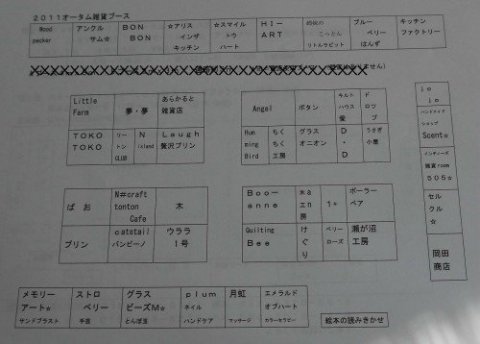 2011オータム雑貨ブース
Wood pecker
アンクル サム☆
BON BON
☆アリス インザ キッチン
☆スマイル トゥ ハート
HI－ART
リトルラビット
ブルー ベリー はんず
キッチン ファクトリー
Little Farm
夢・夢
あらかると 雑貨店
TOKO TOKO
リー トン CLUB
N island
Laugh 贅沢プリン
Angel
ボタン
キルト ハウス 愛
ドロップ
Hum ming Bird
ちく ちく 工房
グラス オニオン
D・D
うさぎ 小屋
jo jo
ハンドメイド ショップ Scent☆
雑貨room 505☆
セル クル ☆
岡田 商店
ぱお
N#craft tonton Cafe
木
プリン
catstail バンビーノ
ウララ 1号
Boo-enne
木aエn房
1ル
ポーラー ベア
Quilting Bee
けぐり
ベリー ローズ
瀬が沼 工房
メモリー アート☆ サンドブラスト
ストロ ベリー 手芸
グラス ビーズM☆ とんぼ玉
plum ネイル ハンドケア
月虹 マッサージ
エメラルド オブハート カラーセラピー
絵本の読みきかせ